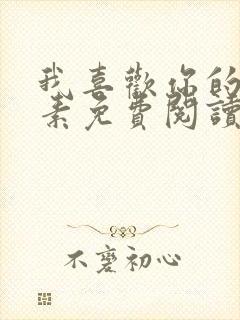 我喜歡你的
素免費閱讀
不變初心